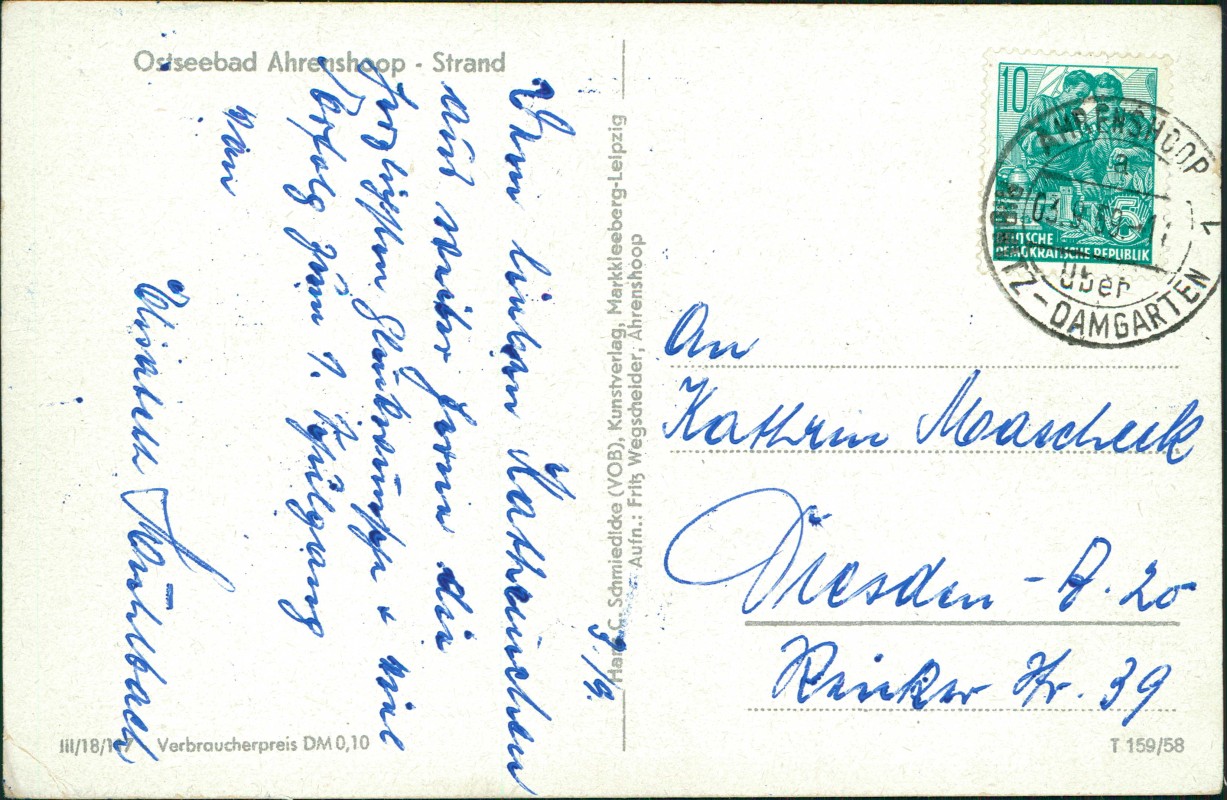 Ostseebad Ahrenshoop - Strand
3/9.
Dem lieben Kathrinchen
aus weiter Ferne die
herzlichsten Glückwünsche + viel
Erfolg zum 1. Schulgang
von
Elisabeth Mühlbach
Hans C. Schmiedicke (VOB), Kunstverlag, Markkleeberg-Leipzig
Aufn.: Fritz Wegscheider, Ahrenshoop
10
DEUTSCHE
DEMOKRATISCHE REPUBLIK
AHRENSHOOP
a
03.9.59
über
TZ-DAMGARTEN
An
Kathrin Mascheck
Dresden - A. 20
Reicker Str. 39
III/18/1 7 Verbraucherpreis DM 0,10
T 159/58